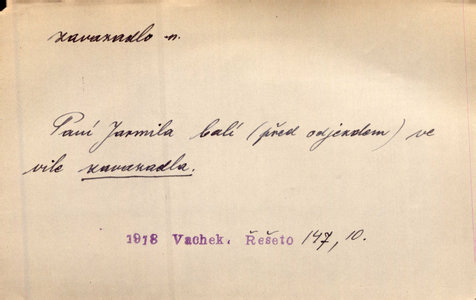 zavazadlo n.
Paní Jarmila balí (před odjezdem) ve
vile zavazadla.
1918 Vachek, Řešeto 147, 10.